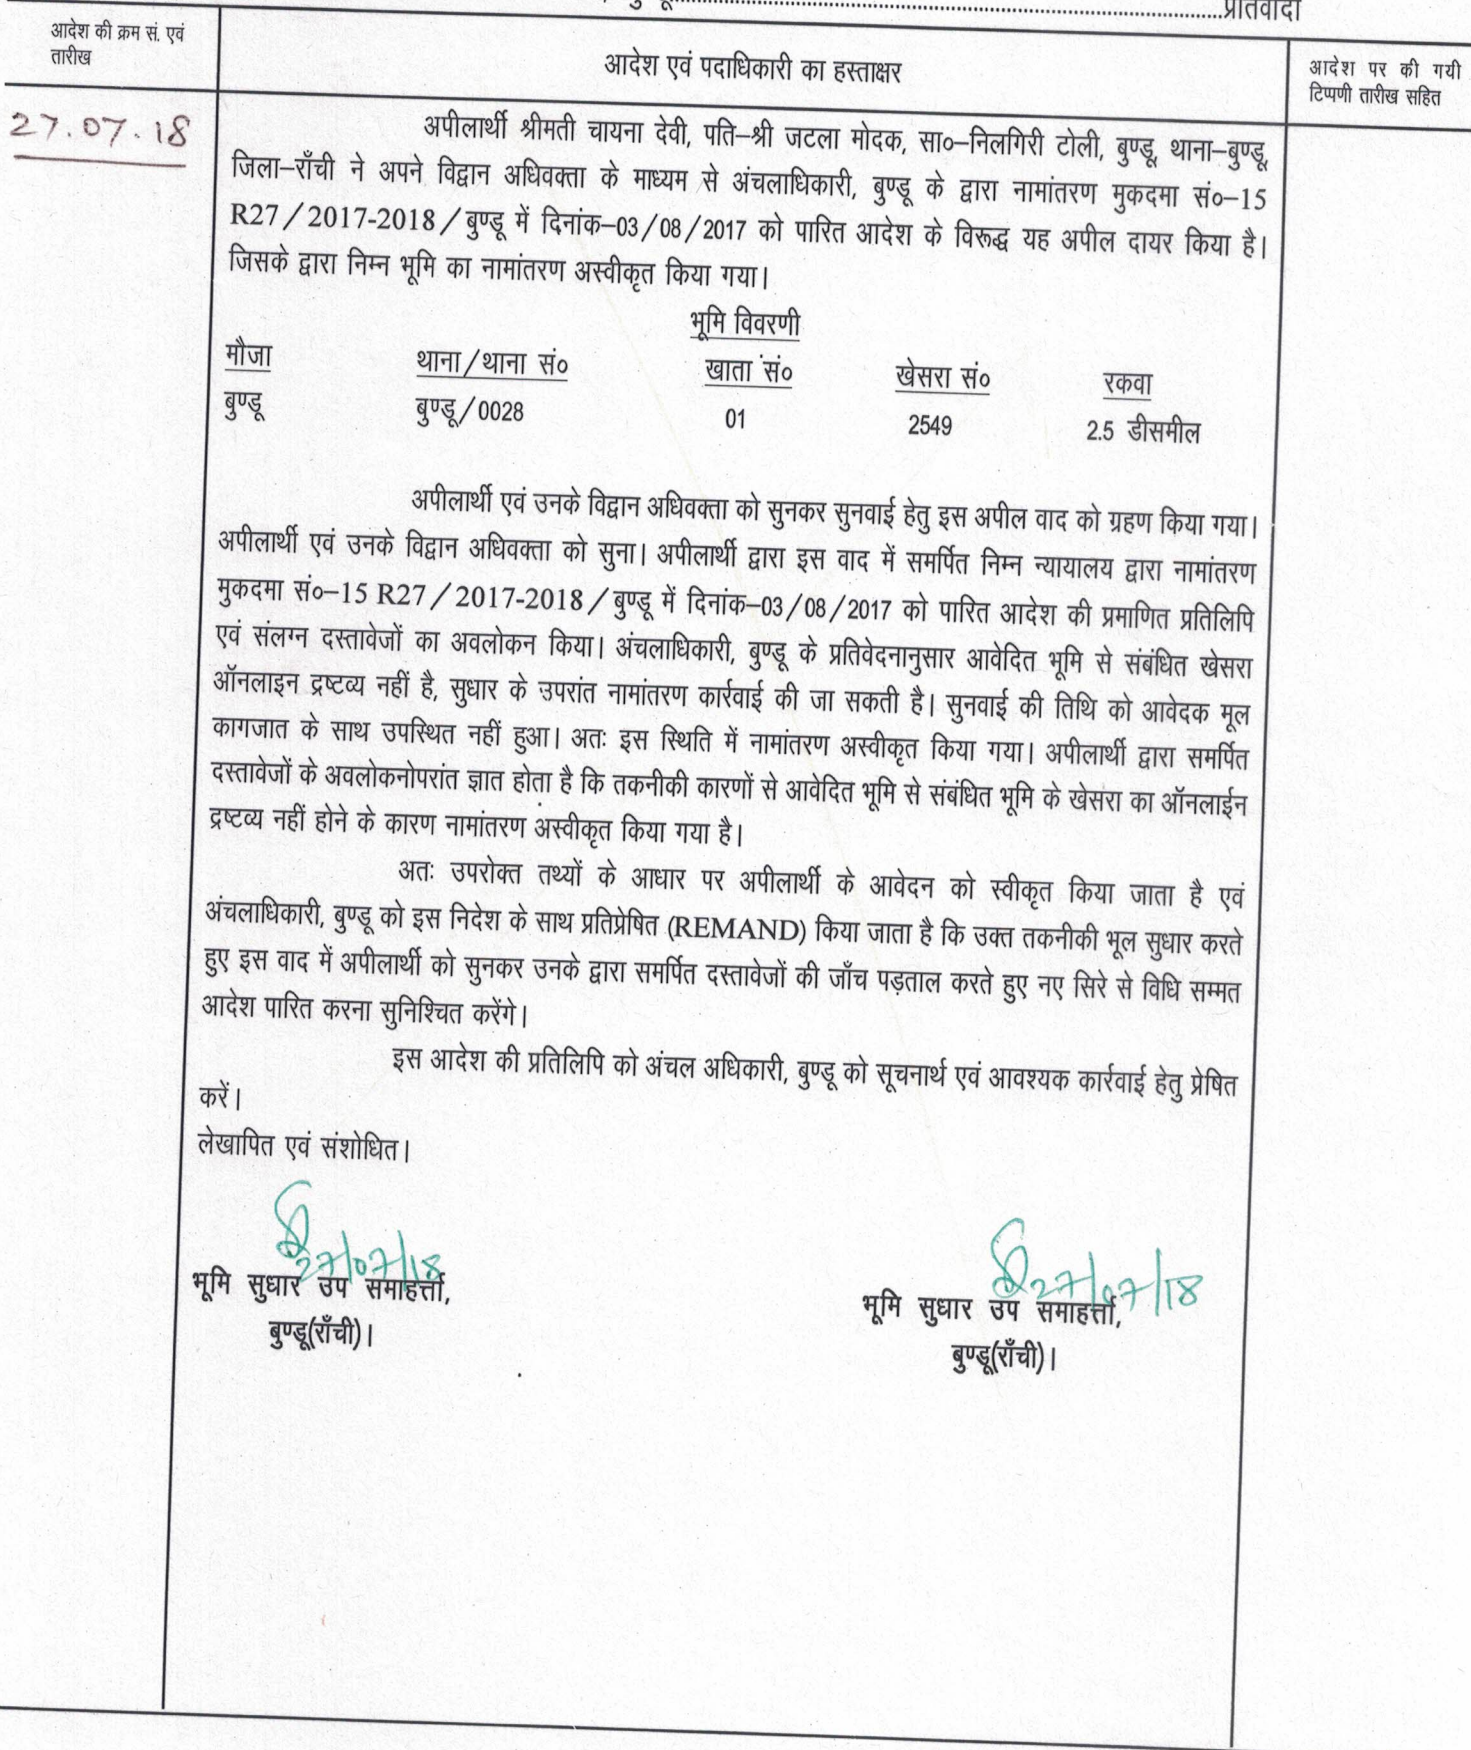 प्रतिवादी
आदेश की क्रम सं. एवं
तारीख
आदेश एवं पदाधिकारी का हस्ताक्षर
आदेश पर की गयी
टिप्पणी तारीख सहित
27.07.18
अपीलार्थी श्रीमती चायना देवी, पति–श्री जटला मोदक, सा०–निलगिरी टोली, बुण्डू, थाना–बुण्डू,
जिला–राँची ने अपने विद्वान अधिवक्ता के माध्यम से अंचलाधिकारी, बुण्डू के द्वारा नामांतरण मुकदमा सं०–15
R27/2017-2018/बुण्डू में दिनांक–03/08/2017 को पारित आदेश के विरूद्ध यह अपील दायर किया है।
जिसके द्वारा निम्न भूमि का नामांतरण अस्वीकृत किया गया।
भूमि विवरणी
मौजा थाना/थाना सं० खाता सं० खेसरा सं० रकवा
बुण्डू बुण्डू/0028 01 2549 2.5 डीसमील
अपीलार्थी एवं उनके विद्वान अधिवक्ता को सुनकर सुनवाई हेतु इस अपील वाद को ग्रहण किया गया।
अपीलार्थी एवं उनके विद्वान अधिवक्ता को सुना। अपीलार्थी द्वारा इस वाद में समर्पित निम्न न्यायालय द्वारा नामांतरण
मुकदमा सं०–15 R27/2017-2018/बुण्डू में दिनांक–03/08/2017 को पारित आदेश की प्रमाणित प्रतिलिपि
एवं संलग्न दस्तावेजों का अवलोकन किया। अंचलाधिकारी, बुण्डू के प्रतिवेदनानुसार आवेदित भूमि से संबंधित खेसरा
ऑनलाइन द्रष्टव्य नहीं है, सुधार के उपरांत नामांतरण कार्रवाई की जा सकती है। सुनवाई की तिथि को आवेदक मूल
कागजात के साथ उपस्थित नहीं हुआ। अतः इस स्थिति में नामांतरण अस्वीकृत किया गया। अपीलार्थी द्वारा समर्पित
दस्तावेजों के अवलोकनोपरांत ज्ञात होता है कि तकनीकी कारणों से आवेदित भूमि से संबंधित भूमि के खेसरा का ऑनलाईन
द्रष्टव्य नहीं होने के कारण नामांतरण अस्वीकृत किया गया है।
अतः उपरोक्त तथ्यों के आधार पर अपीलार्थी के आवेदन को स्वीकृत किया जाता है एवं
अंचलाधिकारी, बुण्डू को इस निदेश के साथ प्रतिप्रेषित (REMAND) किया जाता है कि उक्त तकनीकी भूल सुधार करते
हुए इस वाद में अपीलार्थी को सुनकर उनके द्वारा समर्पित दस्तावेजों की जाँच पड़ताल करते हुए नए सिरे से विधि सम्मत
आदेश पारित करना सुनिश्चित करेंगे।
इस आदेश की प्रतिलिपि को अंचल अधिकारी, बुण्डू को सूचनार्थ एवं आवश्यक कार्रवाई हेतु प्रेषित
करें।
लेखापित एवं संशोधित।
27/07/18 27/07/18
भूमि सुधार उप समाहर्त्ता, भूमि सुधार उप समाहर्त्ता,
बुण्डू(राँची)। बुण्डू(राँची)।